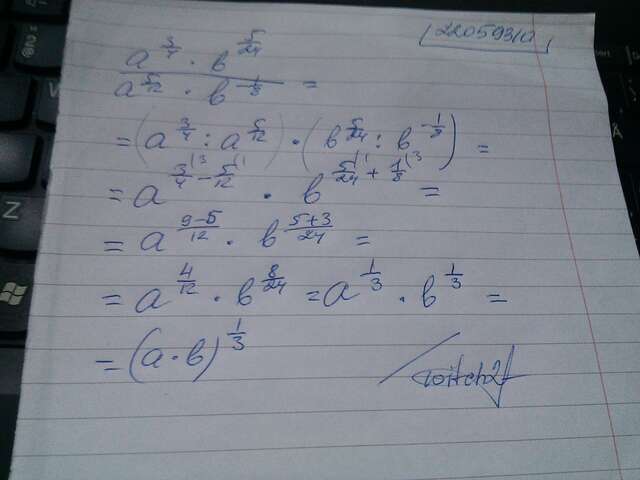 22059310
a^(3/4) · b^(5/24) / a^(5/12) · b^(-1/8) =
= (a^(3/4) : a^(5/12)) · (b^(5/24) : b^(-1/8)) =
= a^(3/4 - 5/12) · b^(5/24 + 1/8) =
= a^((9-5)/12) · b^((5+3)/24) =
= a^(4/12) · b^(8/24) = a^(1/3) · b^(1/3) =
= (a · b)^(1/3)
Z